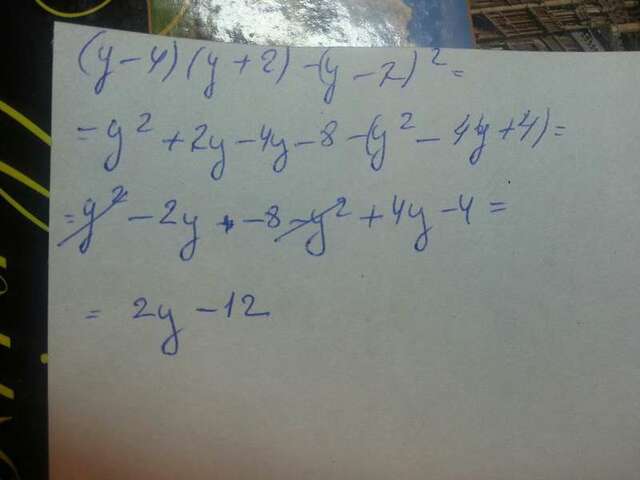 (y-4)(y+2)-(y-2)²=
=y²+2y-4y-8-(y²-4y+4)=
=y²-2y-8-y²+4y-4=
=2y-12